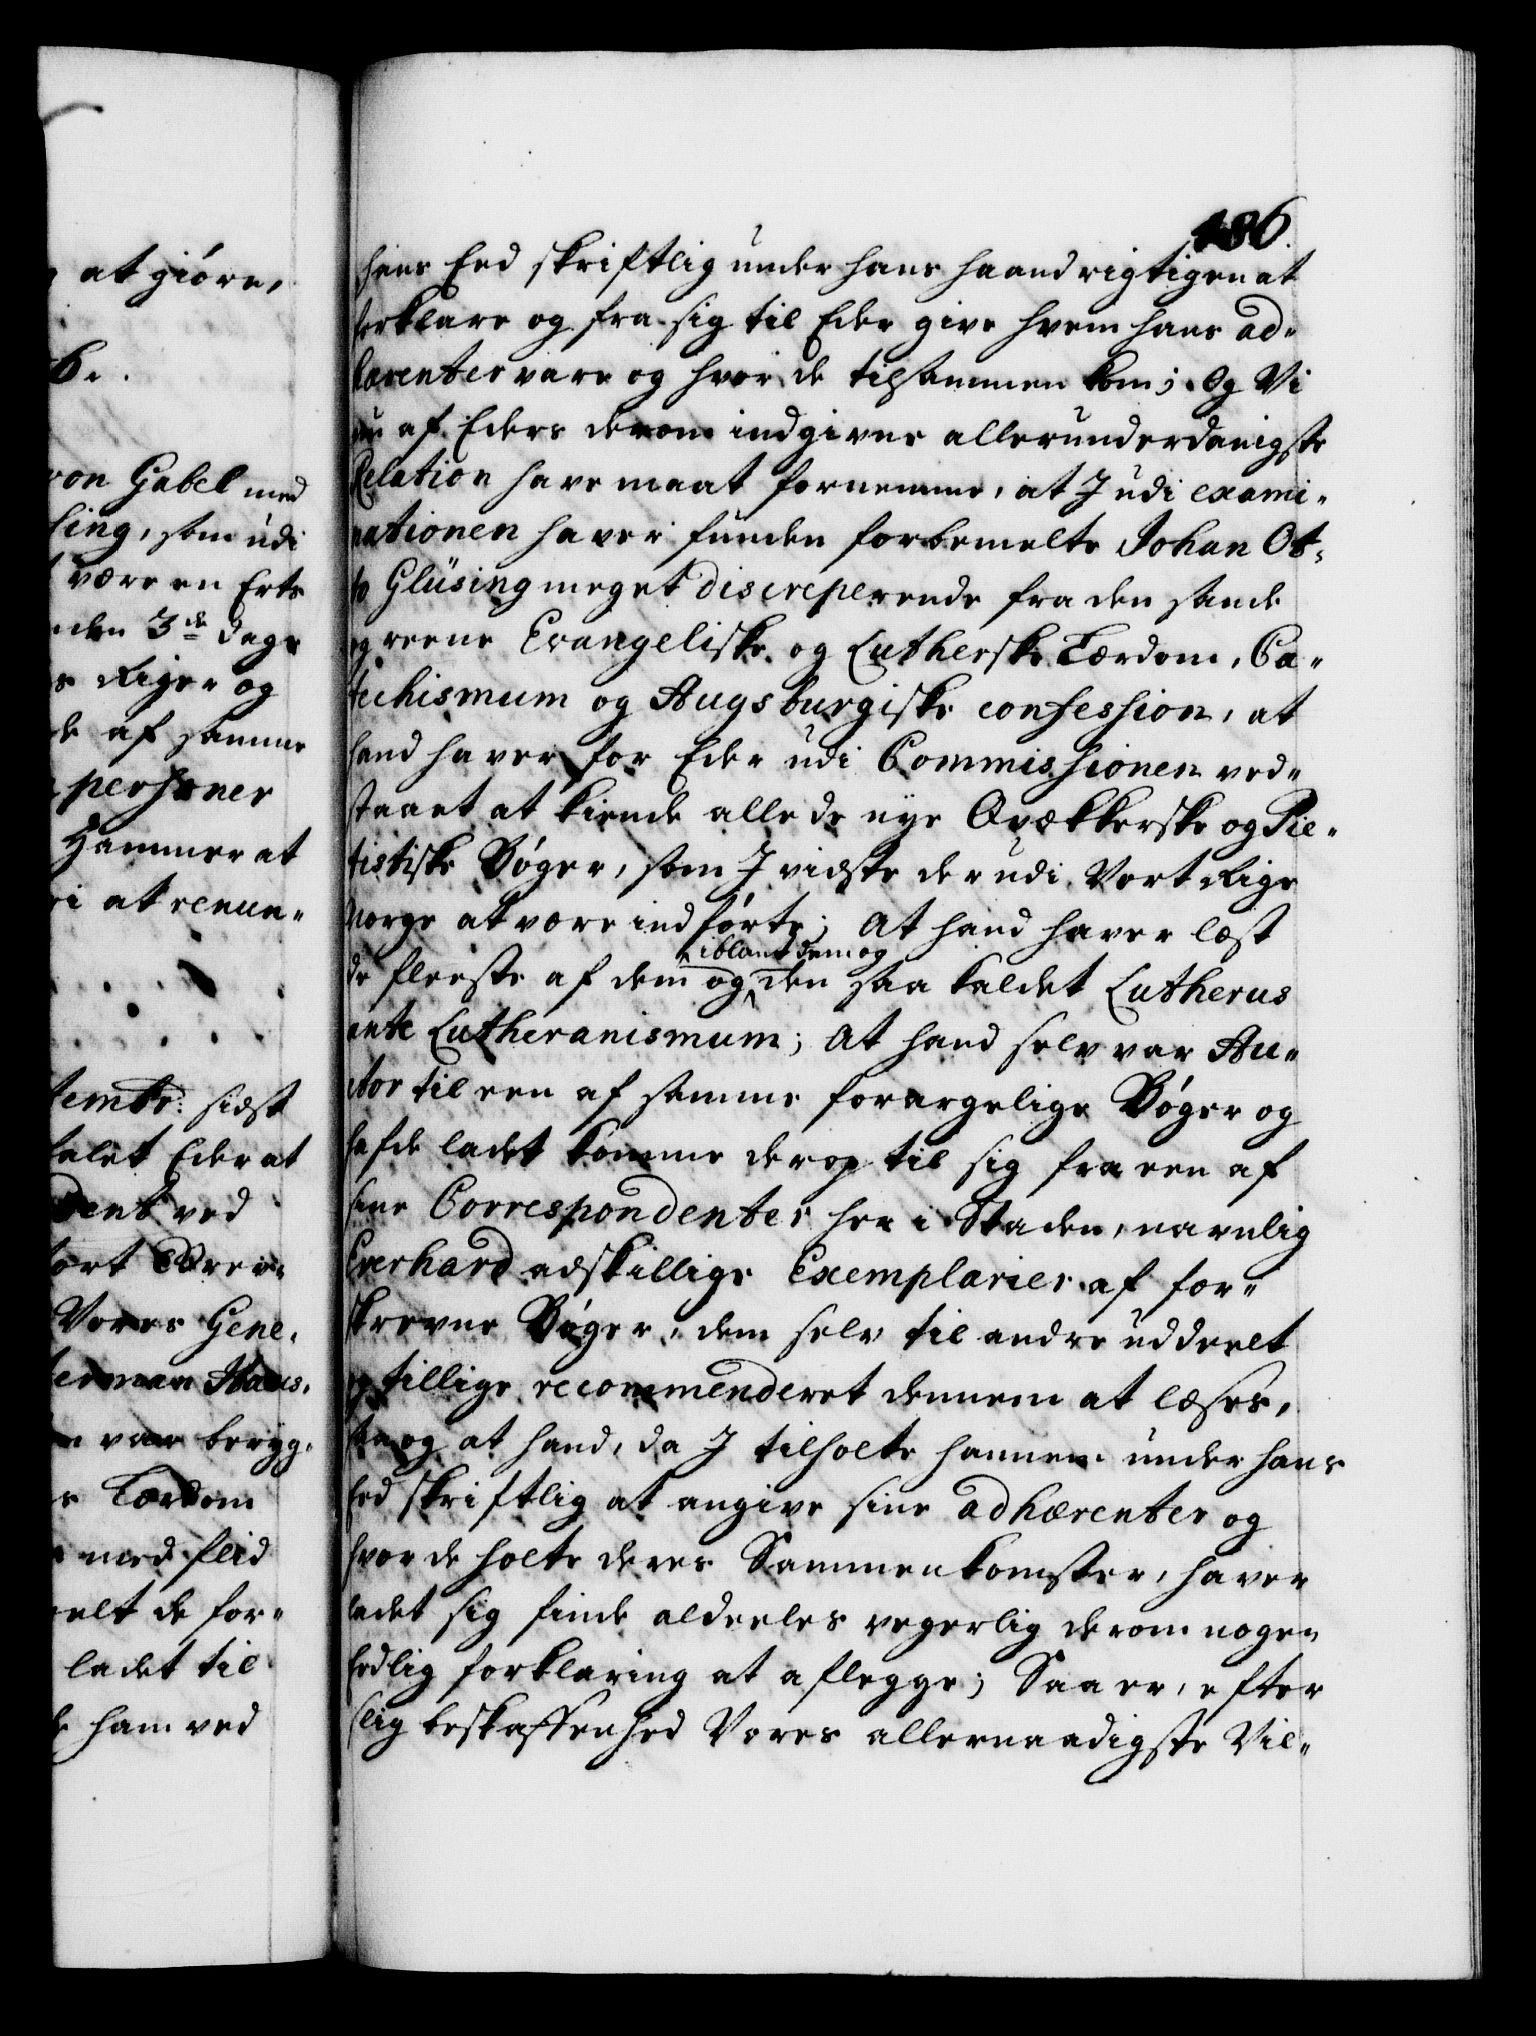 at giöre,
on Gabel med
sing, som udi
være en Erts
den 3de Dags
Riger og
af samme
personer
Hammer at
at renun-
tembr: sidst
falet Eder at
dent ved
ort Brev
Vores Gene-
var beryg-
Lærdom
med flid
elt de for-
ladet til
ham ved
186.
hans Eed skriftlig under hans haand rigtigen at
forklare og fra sig til Eder give hvem hans ad-
hærenter vare og hvor de tilsammen kom; Og Vi
nu af Eders derom indgivne allerunderdanigste
Relation have maat fornemme, at I udi exami-
nationen haver funden forbemelte Johan Ot-
to Glüsing meget discreperende fra den sande
og reene Evangeliske og Lutherske Lærdom, Ca-
techismum og Augsburgiske confession, at
hand haver for Eder udi Commissionen ved-
staaet at kiende alle de nye Qvækkerske og Pie-
tistiske Böger, som I vidste der udi Vort Rige
Norge at være indförte; At hand haver læst
ibland dem og
de fleeste af dem og den saa kaldet Lutherus
ante Lutheranismum; At hand selv var Au-
ctor til een af samme forargelige Böger og
hafde ladet komme derop til sig fra een af
sine Correspondenter her i Staden, navnlig
Everhard adskillige Exemplarier af for-
skrevne Böger, dem selv til andre uddeelt
og tillige recommenderet dennem at læses,
saa og at hand, da I tilholte hannem under hans
Eed skriftlig at angive sine adhærenter og
hvor de holte deres Sammenkomster, haver
ladet sig finde aldeeles vegerlig derom nogen
Eedlig forklaring at aflegge; Saa er, efter
slig beskaffenhed Vores allernaadigste Vil-